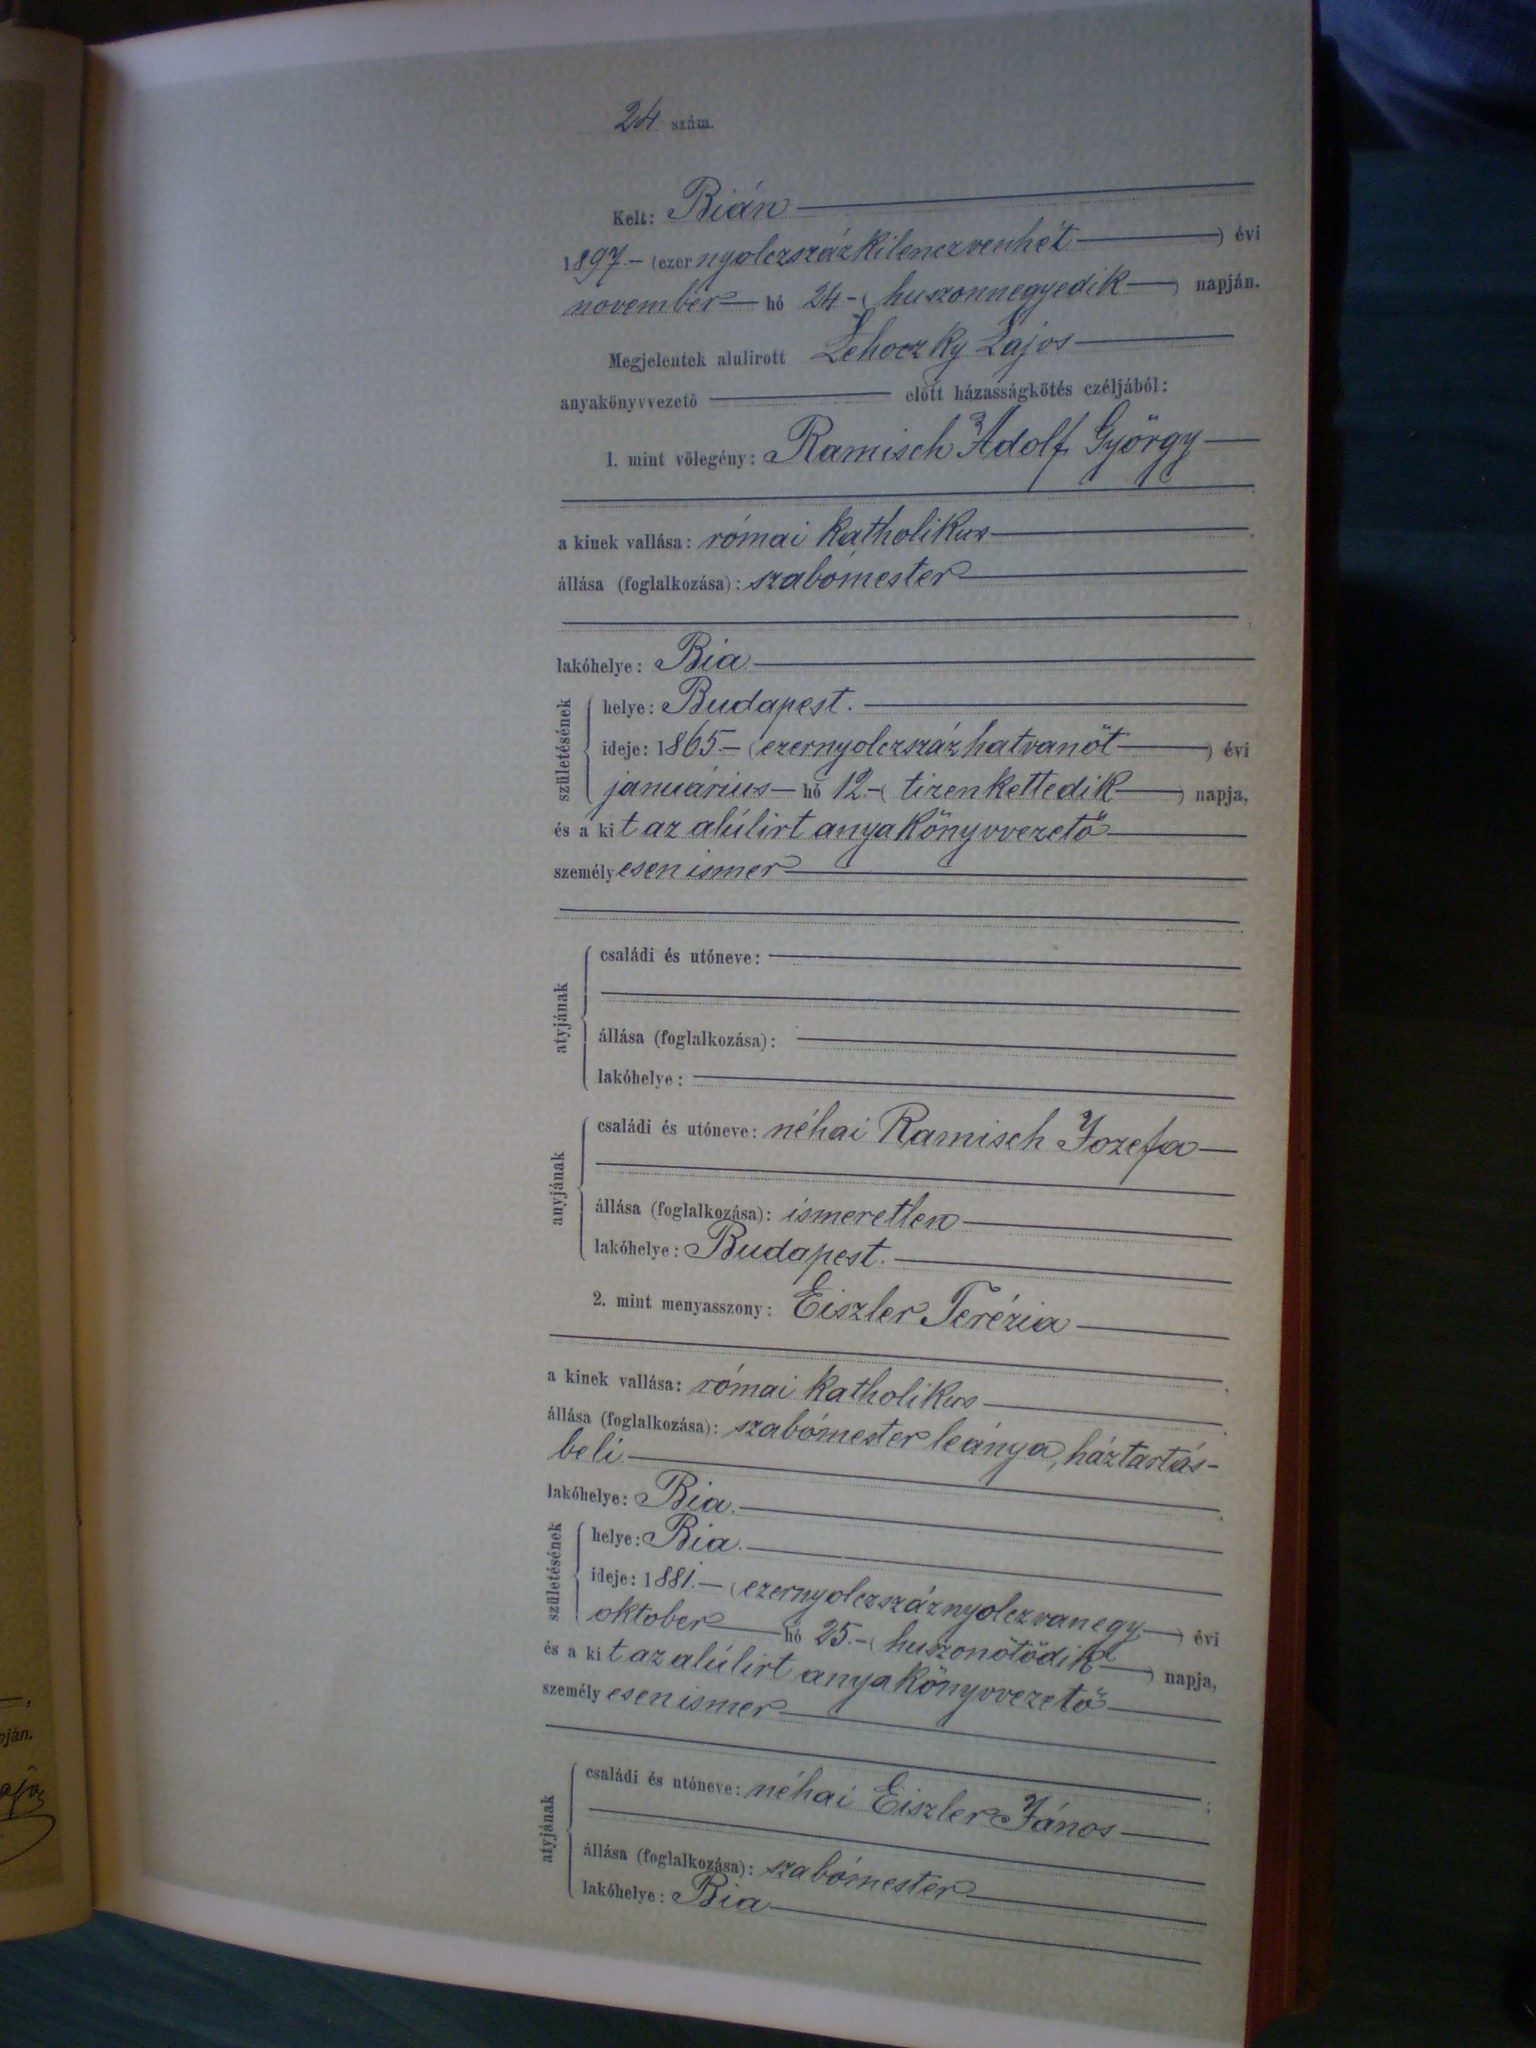 24. szám.
Kelt: Bián
1897.– (ezernyolczszázkilenczvenhét) évi
november hó 24.–( huszonnegyedik ) napján.
Megjelentek alulirott Lehoczky Lajos
anyakönyvvezető előtt házasságkötés czéljából:
1. mint völegény: Ramisch Adolf György
a kinek vallása: római katholikus
állása (foglalkozása): szabómester
lakóhelye: Bia
születésének
helye: Budapest.
ideje: 1865.– (ezernyolczszázhatvanöt ) évi
januárius hó 12.–( tizenkettedik ) napja,
és a kit az alúlirt anyakönyvvezető
személyesen ismer
atyjának
családi és utóneve:
állása (foglalkozása):
lakóhelye:
anyjának
családi és utóneve: néhai Ramisch Jozefa
állása (foglalkozása): ismeretlen
lakóhelye: Budapest.
2. mint menyasszony: Eiszler Terézia
a kinek vallása: római katholikus
állása (foglalkozása): szabómester leánya, háztartás-
beli
lakóhelye: Bia.
születésének
helye: Bia.
ideje: 1881.– (ezernyolczszáznyolczvanegy ) évi
oktober hó 25.–( huszonötödik ) napja,
és a kit az alúlirt anyakönyvvezető
személyesen ismer
atyjának
családi és utóneve: néhai Eiszler János
állása (foglalkozása): szabómester
lakóhelye: Bia